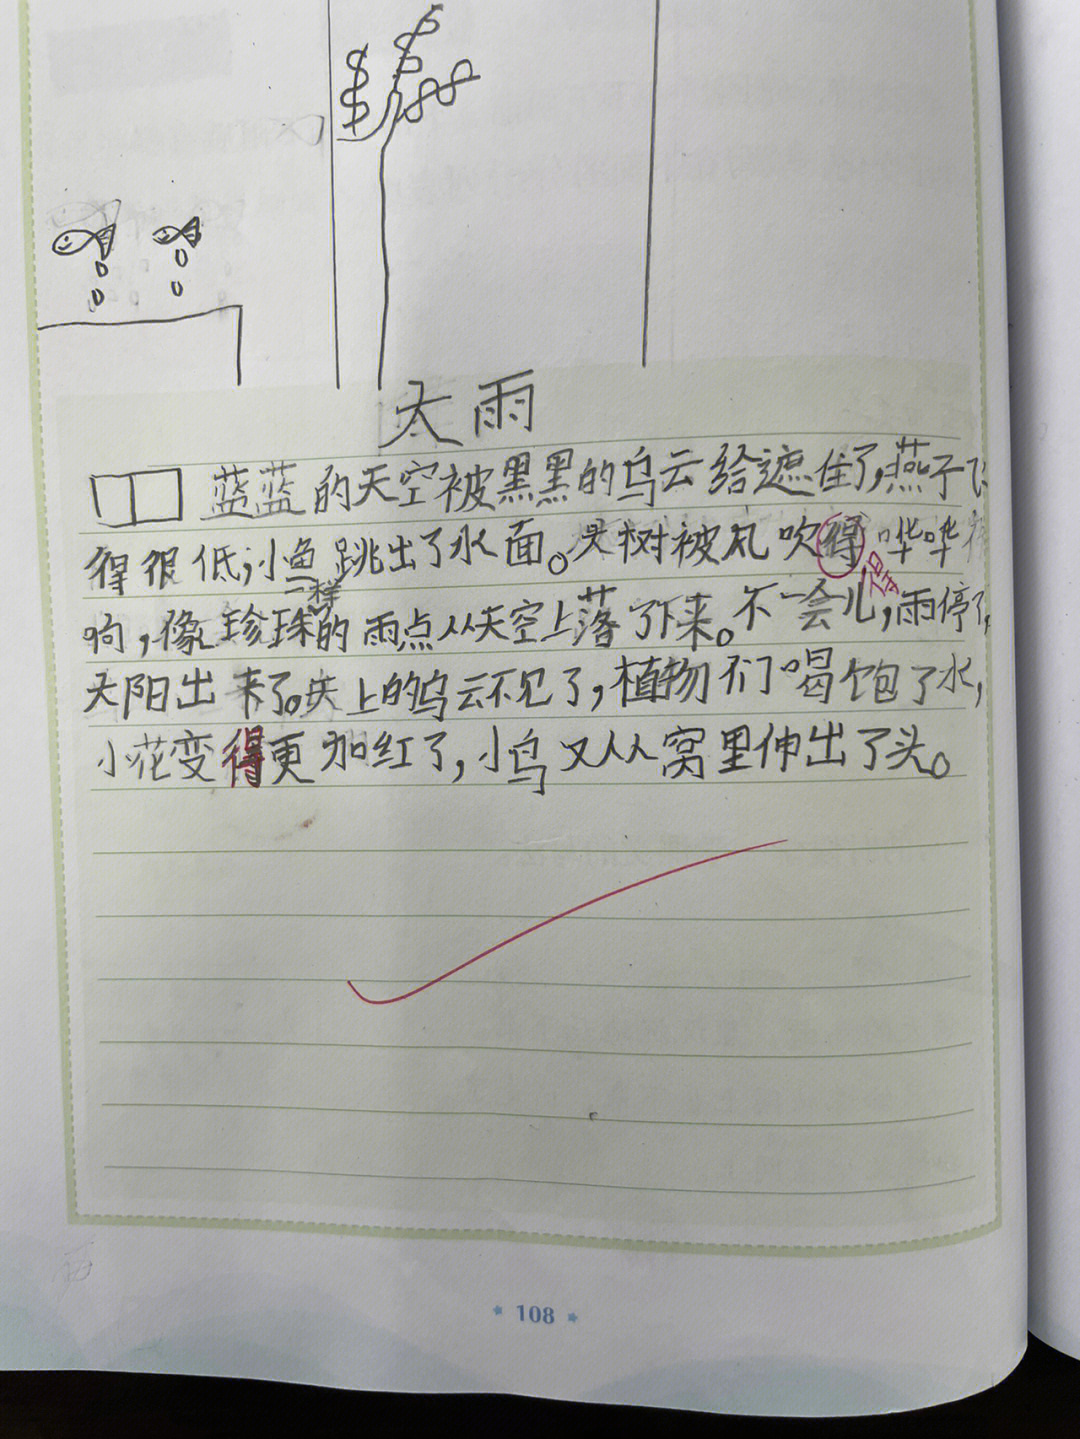 大雨
蓝蓝的天空被黑黑的乌云给遮住了,燕子飞
得很低,小鱼跳出了水面。大树被风吹得哗哗
响,像珍珠一样的雨点从天空上落了下来。不一会儿,雨停了,
得
太阳出来了。天上的乌云不见了,植物们喝饱了水,
小花变得更加红了,小鸟又从窝里伸出了头。
108